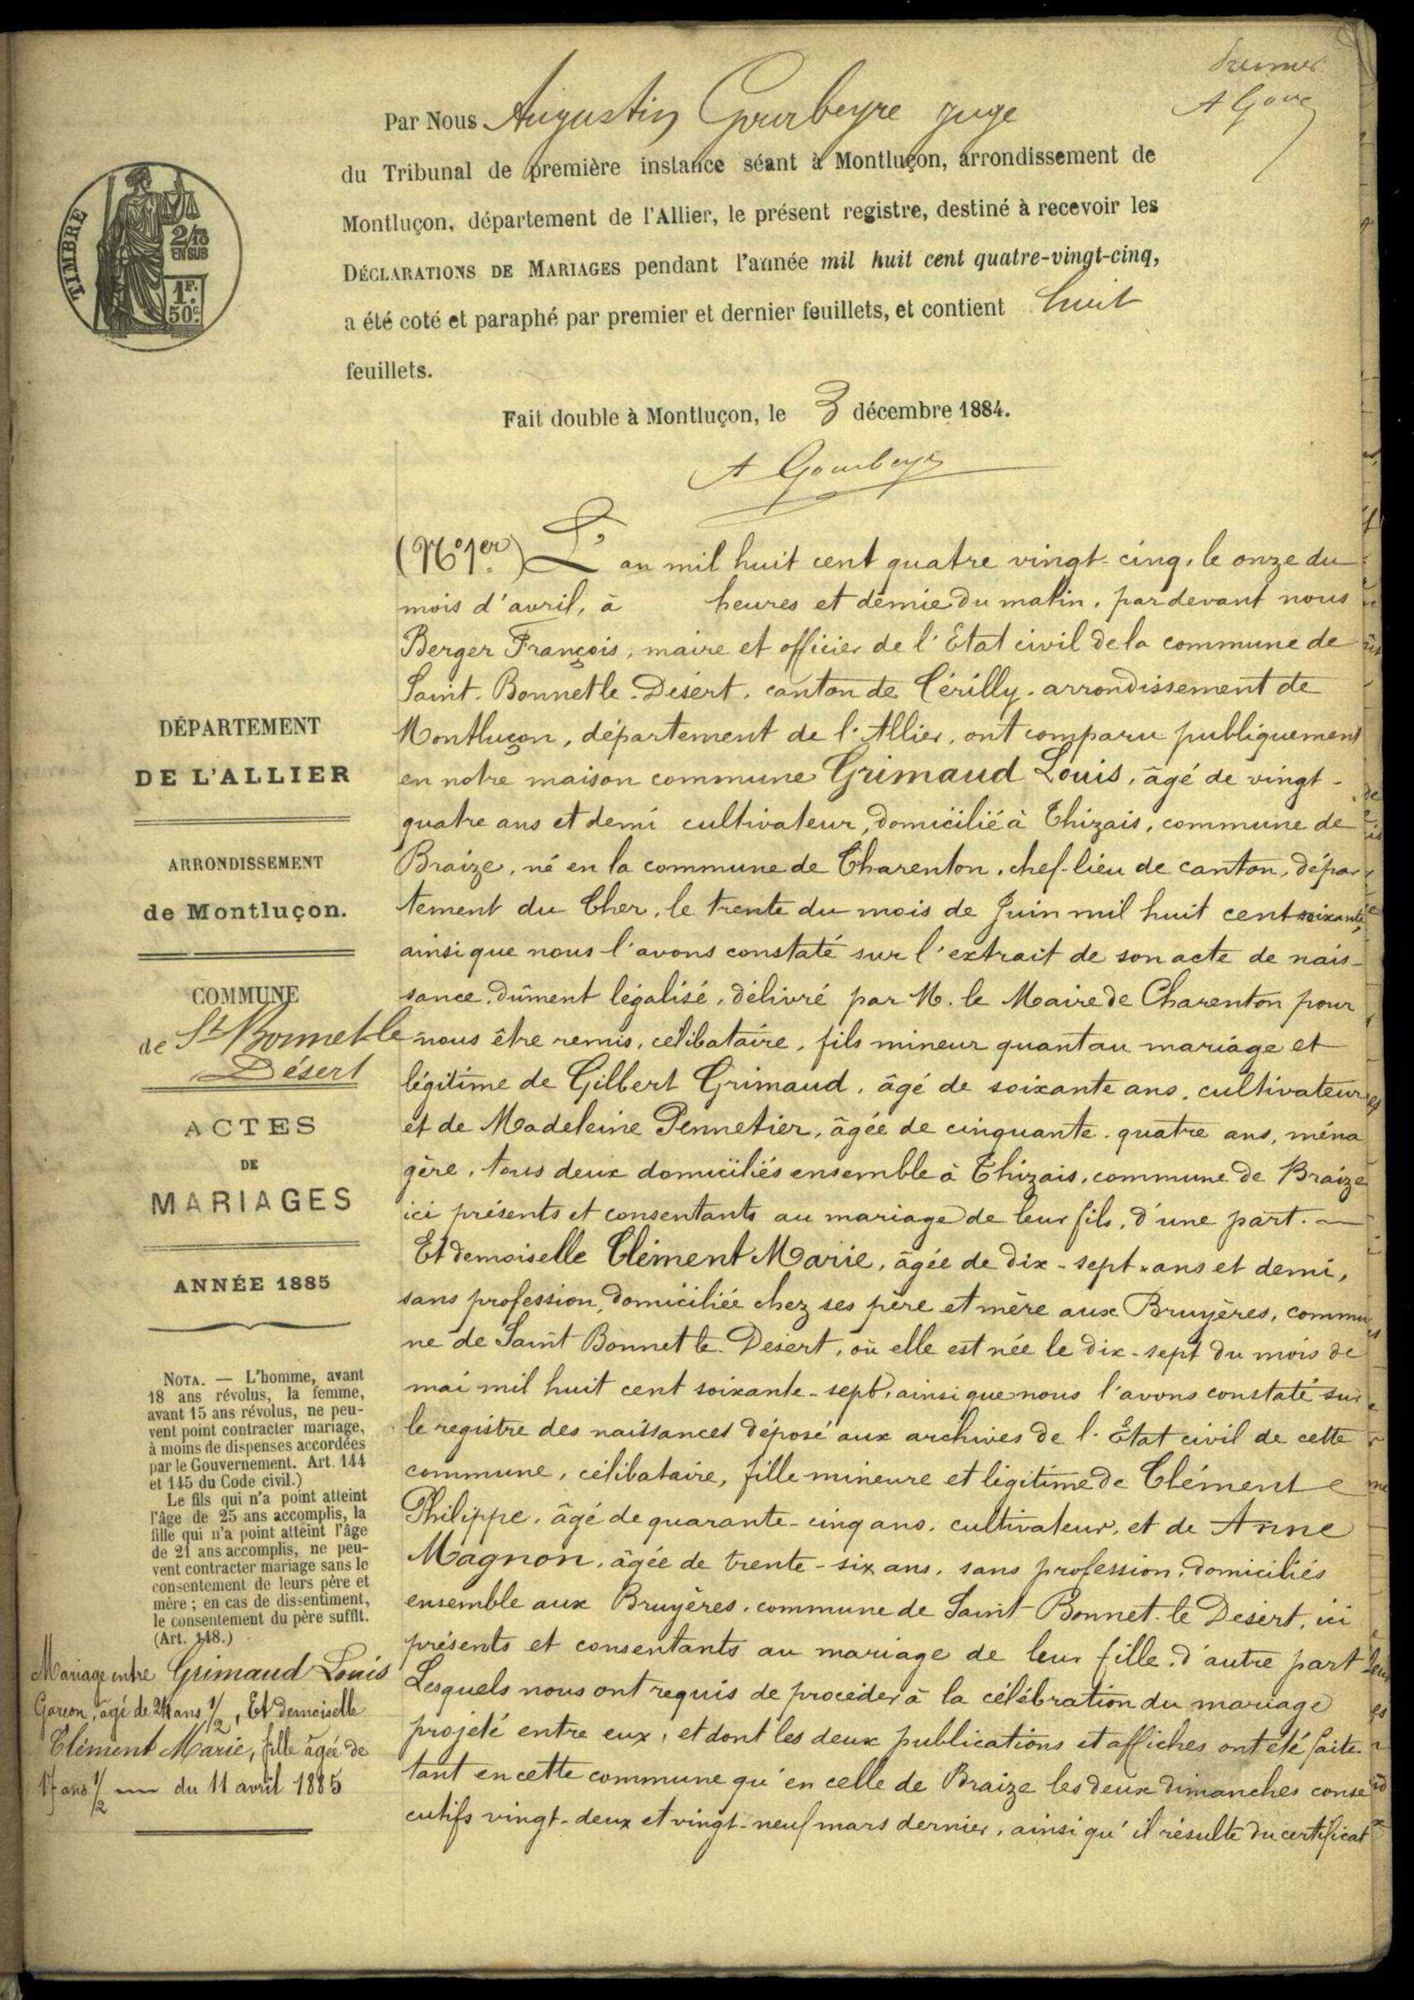 premier
A Gour
Par Nous Augustin Gourbeyre juge
du Tribunal de première instance séant à Montluçon, arrondissement de
Montluçon, département de l'Allier, le présent registre, destiné à recevoir les
DÉCLARATIONS DE MARIAGES pendant l'année mil huit cent quatre-vingt-cinq,
a été coté et paraphé par premier et dernier feuillets, et contient huit
feuillets.
Fait double à Montluçon, le 3 décembre 1884.
A Gourbeyre
TIMBRE
2/10
EN SUS
1F.
50c
DÉPARTEMENT
DE L'ALLIER
ARRONDISSEMENT
de Montluçon.
COMMUNE
de St Bonnet-le
Désert
ACTES
DE
MARIAGES
ANNÉE 1885
NOTA. — L'homme, avant
18 ans révolus, la femme,
avant 15 ans révolus, ne peu-
vent point contracter mariage,
à moins de dispenses accordées
par le Gouvernement. Art. 144
et 145 du Code civil.)
Le fils qui n'a point atteint
l'âge de 25 ans accomplis, la
fille qui n'a point atteint l'âge
de 21 ans accomplis, ne peu-
vent contracter mariage sans le
consentement de leurs père et
mère ; en cas de dissentiment,
le consentement du père suffit.
(Art. 148.)
Mariage entre Grimaud Louis
Garçon, âgé de 24 ans 1/2, Et demoiselle
Clément Marie, fille âgée de
17 ans 1/2 — du 11 avril 1885
(No 1er.) L'an mil huit cent quatre vingt-cinq, le onze du
mois d'avril, à heures et demie du matin, pardevant nous
Berger François, maire et officier de l'Etat civil de la commune de
Saint-Bonnet le-Désert, canton de Cérilly, arrondissement de
Montluçon, département de l'Allier, ont comparu publiquement
en notre maison commune Grimaud Louis, âgé de vingt-
quatre ans et demi cultivateur, domicilié à Thizais, commune de
Braize, né en la commune de Charenton, chef-lieu de canton, dépar
tement du Cher, le trente du mois de Juin mil huit cent soixante,
ainsi que nous l'avons constaté sur l'extrait de son acte de nais-
sance, dûment légalisé, délivré par M. le Maire de Charenton pour
nous être remis, célibataire, fils mineur quant au mariage et
légitime de Gilbert Grimaud, âgé de soixante ans, cultivateur
et de Madeleine Pennetier, âgée de cinquante-quatre ans, ména
gère, tous deux domiciliés ensemble à Thizais, commune de Braize
ici présents et consentants au mariage de leur fils, d'une part. —
Et demoiselle Clément Marie, âgée de dix-sept ans et demi,
sans profession, domiciliée chez ses père et mère aux Bruyères, commu
ne de Saint Bonnet le-Desert, où elle est née le dix-sept du mois de
mai mil huit cent soixante-sept, ainsi que nous l'avons constaté sur
le registre des naissances déposé aux archives de l'Etat civil de cette
commune, célibataire, fille mineure et légitime de Clément
Philippe, âgé de quarante-cinq ans, cultivateur, et de Anne
Magnon, âgée de trente-six ans, sans profession, domiciliés
ensemble aux Bruyères, commune de Saint Bonnet-le Desert, ici
présents et consentants au mariage de leur fille, d'autre part
Lesquels nous ont requis de procéder à la célébration du mariage
projeté entre eux, et dont les deux publications et affiches ont été faite
tant en cette commune qu'en celle de Braize les deux dimanches consé
cutifs vingt-deux et vingt-neuf mars dernier, ainsi qu'il résulte du certificat